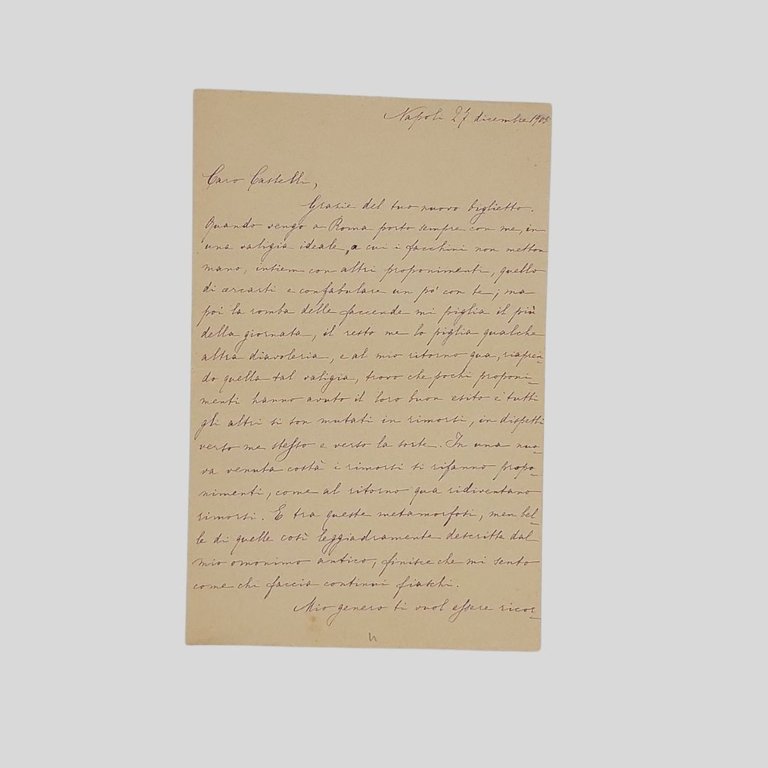 Napoli 27 dicembre 1905
Caro Castelli,
Grazie del tuo nuovo biglietto.
Quando vengo a Roma porto sempre con me, in
una valigia ideale, a cui i facchini non metton
mano, insiem con altri proponimenti, quello
di cercarti e confabulare un po' con te; ma
poi la romba delle faccende mi piglia il più
della giornata, il resto me lo piglia qualche
altra diavoleria, e al mio ritorno qua, riapren-
do quella tal valigia, trovo che pochi proponi-
menti hanno avuto il loro buon esito e tutti
gli altri si son mutati in rimorsi, in dispetti
verso me stesso e verso la sorte. In una nuo-
va venuta costà i rimorsi si rifanno propo-
nimenti, come al ritorno qua ridiventano
rimorsi. E tra queste metamorfosi, men bel-
le di quelle così leggiadramente descritte dal
mio omonimo antico, finisce che mi sento
come chi faccia continui fiaschi.
Mio genero ti vuol essere ricor-